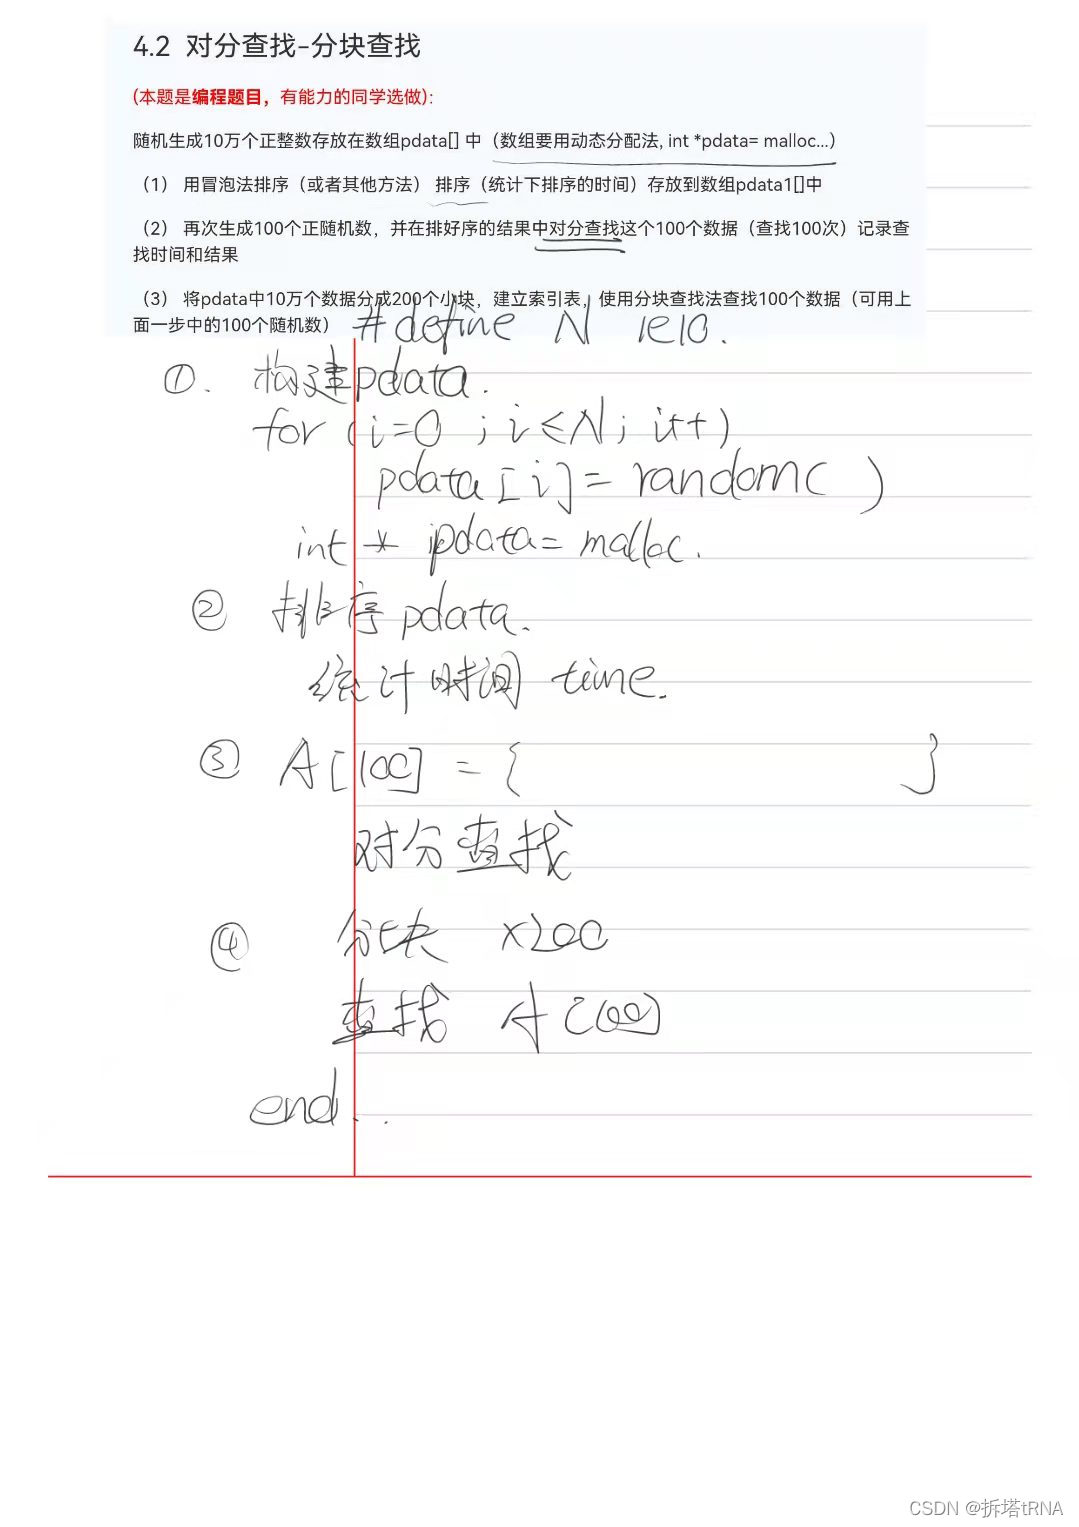 4.2 对分查找-分块查找
(本题是编程题目，有能力的同学选做):
随机生成10万个正整数存放在数组pdata[] 中（数组要用动态分配法, int *pdata= malloc...）
（1） 用冒泡法排序（或者其他方法） 排序（统计下排序的时间）存放到数组pdata1[]中
（2） 再次生成100个正随机数，并在排好序的结果中对分查找这个100个数据（查找100次）记录查
找时间和结果
（3） 将pdata中10万个数据分成200个小块，建立索引表，使用分块查找法查找100个数据（可用上
面一步中的100个随机数）
#define N 1e10.
①. 构建pdata.
for (i=0 ; i≤N; i++)
pdata[i]= random( )
int * pdata= malloc.
② 排序pdata.
统计时间 time.
③ A[100] = { }
对分查找
④ 分块 x200
查找 A[100]
end..
CSDN @拆塔tRNA